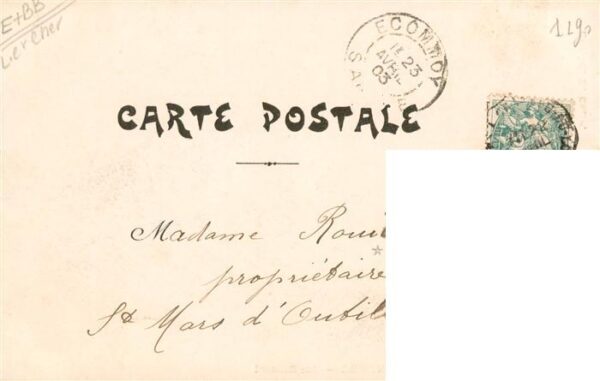 E+BB
ECOMMOY
23
AVRIL
03
CARTE POSTALE
Madame
propriétaire
St Mars d'Outil